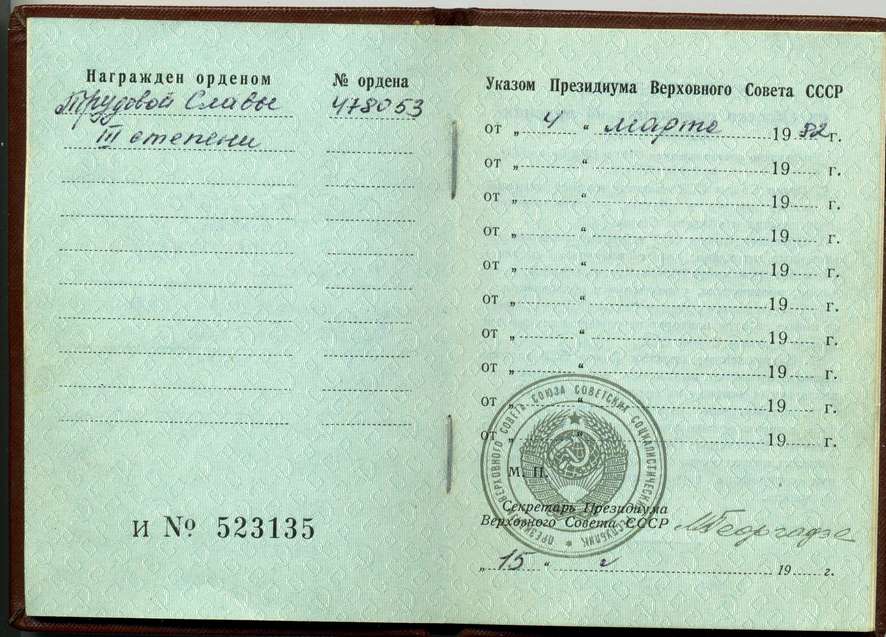 Награжден орденом
№ ордена
Трудовой Славы
478053
III степени
И № 523135
Указом Президиума Верховного Совета СССР
от „ 4 “ марта 1982 г.
от „ “ 19 г.
от „ “ 19 г.
от „ “ 19 г.
от „ “ 19 г.
от „ “ 19 г.
от „ “ 19 г.
от „ “ 19 г.
от „ “ 19 г.
от „ “ 19 г.
ПРЕЗИДИУМ ВЕРХОВНОГО СОВЕТА СОЮЗА СОВЕТСКИХ СОЦИАЛИСТИЧЕСКИХ РЕСПУБЛИК
М. П.
Секретарь Президиума
Верховного Совета СССР
М Георгадзе
„ 15 “ 19 г.